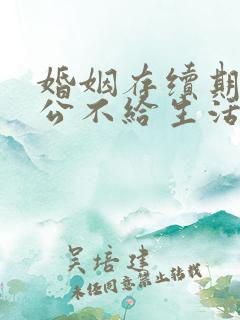 婚姻存续期
公不给生活
吴培建
未经同意禁止转载